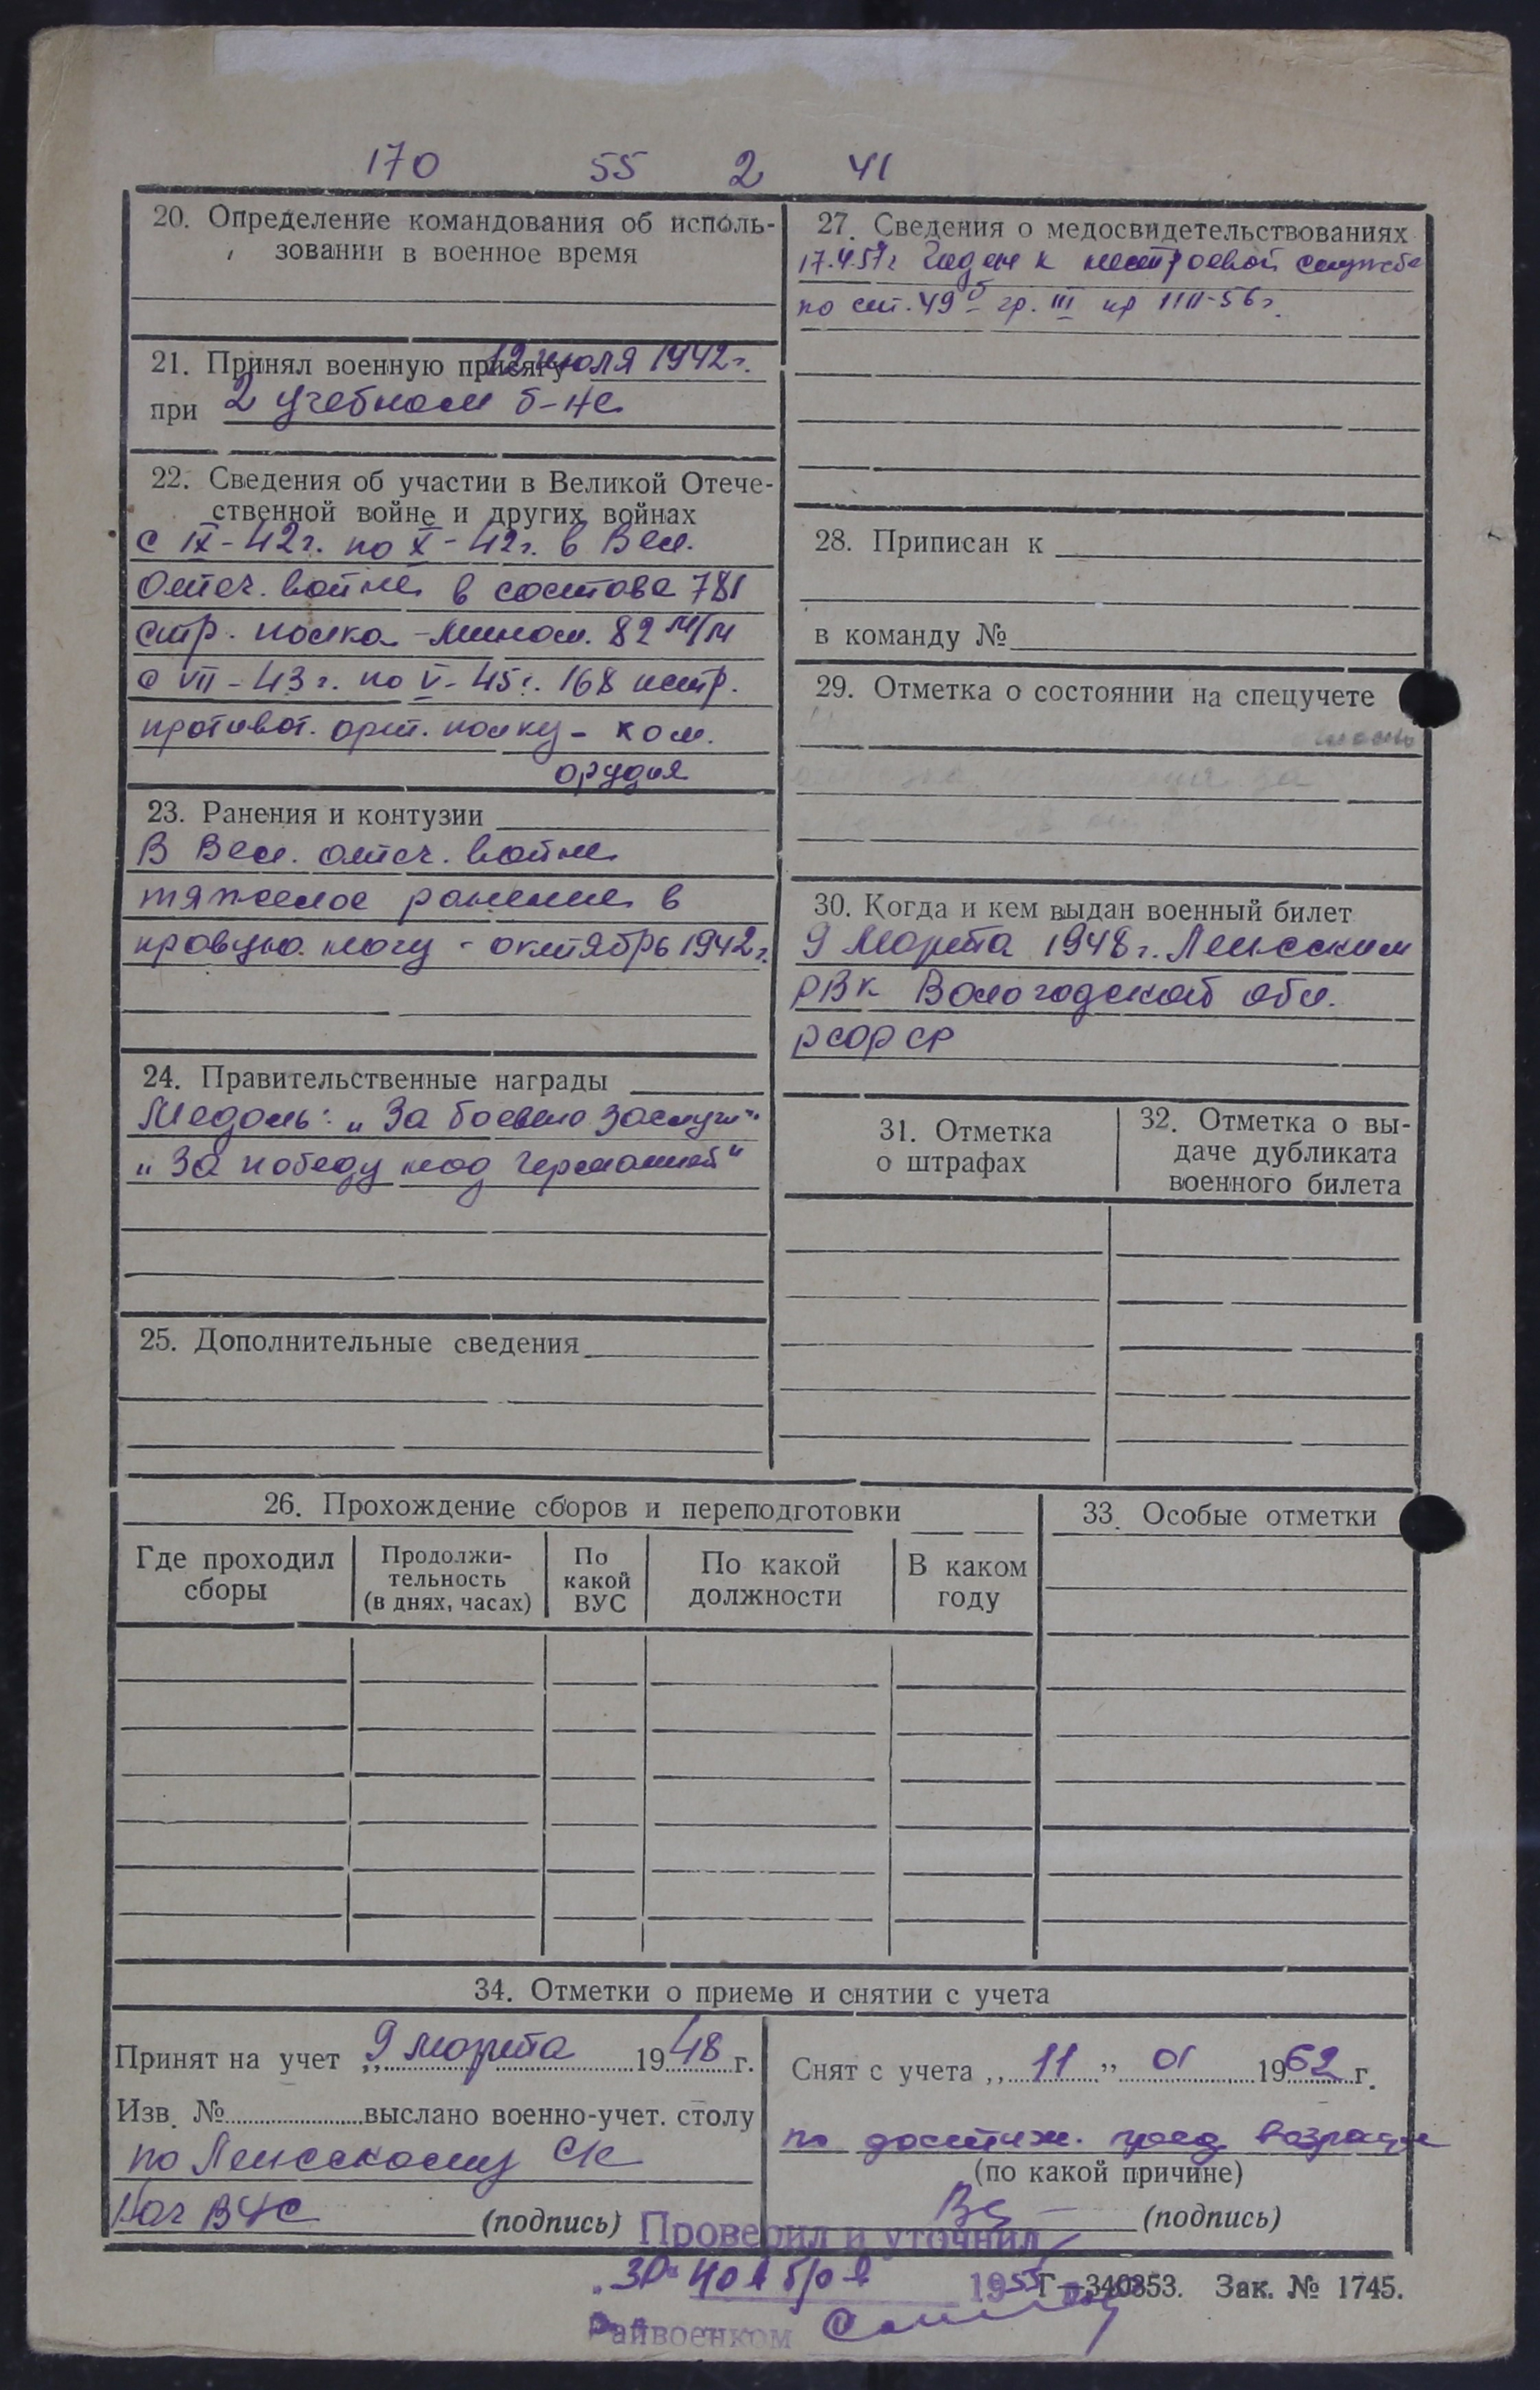 170 55 2 41
20. Определение командования об исполь-
зовании в военное время
21. Принял военную присягу 12 июля 1942 г.
при 2 учебном б-не
22. Сведения об участии в Великой Отече-
ственной войне и других войнах
с IX-42 г. по X-42 г. в Вел.
Отеч. войне в составе 781
стр. полка - мином. 82 м/м
с VII-43 г. по V-45 г. 168 истр.
противот. арт. полку - ком.
орудия
23. Ранения и контузии
В Вел. отеч. войне
тяжелое ранение в
правую ногу - октябрь 1942 г.
24. Правительственные награды
Медаль: „За боевые заслуги"
„За победу над Германией"
25. Дополнительные сведения
27. Сведения о медосвидетельствованиях
17.4.57г Годен к нестроевой службе
по ст. 49б гр. III пр 1111-56г.
28. Приписан к
в команду №
29. Отметка о состоянии на спецучете
30. Когда и кем выдан военный билет
9 марта 1948 г. Ленским
РВК Вологодской обл.
РСФСР
31. Отметка
о штрафах
32. Отметка о вы-
даче дубликата
военного билета
26. Прохождение сборов и переподготовки
Где проходил
сборы
Продолжи-
тельность
(в днях, часах)
По
какой
ВУС
По какой
должности
В каком
году
33. Особые отметки
34. Отметки о приеме и снятии с учета
Принят на учет „9 марта 1948 г.
Изв. № выслано военно-учет. столу
по Ленскому СК
Нач ВУС (подпись)
Снят с учета „11" 01 1962 г.
по достиж. пред возраста
(по какой причине)
(подпись)
Проверил и уточнил
„30" ноября 1955
Г—340853. Зак. № 1745.
Райвоенком